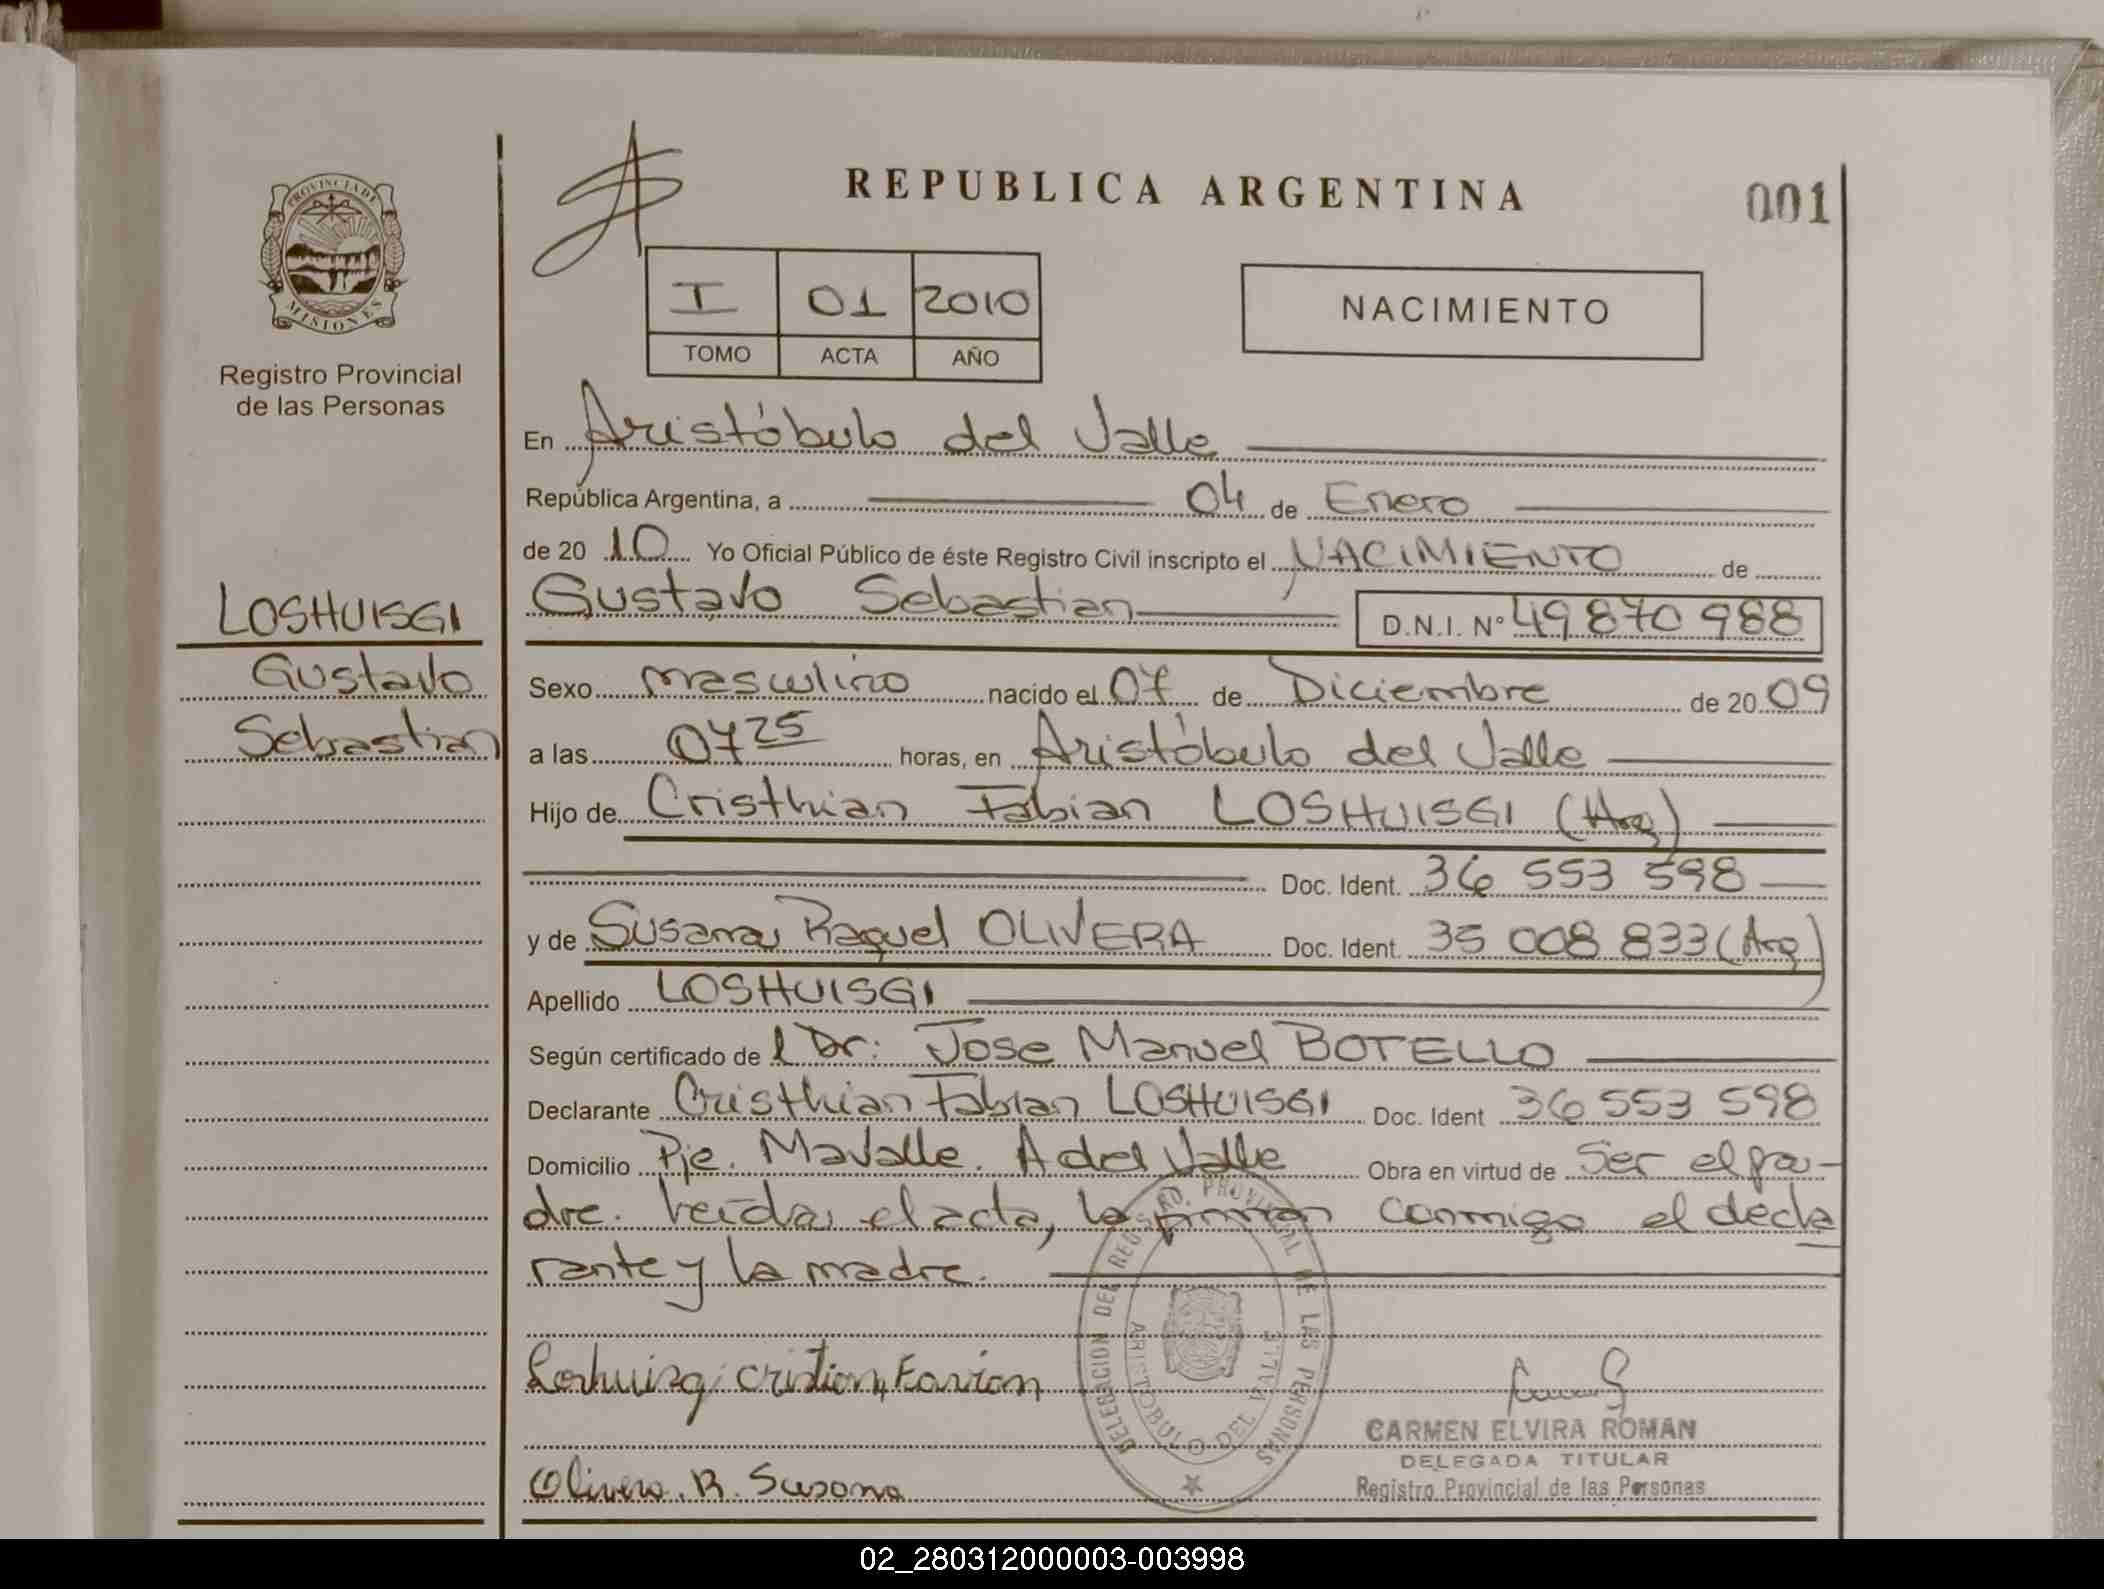 PROVINCIA DE
MISIONES
Registro Provincial
de las Personas
LOSHUISGI
Gustavo
Sebastian
REPUBLICA ARGENTINA
001
I 01 2010
TOMO ACTA AÑO
NACIMIENTO
En Aristóbulo del Valle
República Argentina, a 04 de Enero
de 20 10 Yo Oficial Público de éste Registro Civil inscripto el NACIMIENTO de
Gustavo Sebastian D.N.I. N° 49 870 988
Sexo masculino nacido el 07 de Diciembre de 20 09
a las 07 25 horas, en Aristóbulo del Valle
Hijo de Cristhian Fabian LOSHUISGI (Arg)
Doc. Ident. 36 553 598
y de Susana Raquel OLIVERA Doc. Ident. 35 008 833 (Arg)
Apellido LOSHUISGI
Según certificado de l Dr: Jose Manuel BOTELLO
Declarante Cristhian Fabian LOSHUISGI Doc. Ident 36 553 598
Domicilio Pje. Mavalle. A del Valle Obra en virtud de Ser el pa-
dre. Leída el acta, la firman conmigo el decla
rante y la madre.
DELEGACION DEL REGISTRO PROVINCIAL DE LAS PERSONAS
ARISTOBULO DEL VALLE
Loshuisgi Cristian Favian
CARMEN ELVIRA ROMAN
DELEGADA TITULAR
Registro Provincial de las Personas
Olivera. R. Susana
02_280312000003-003998